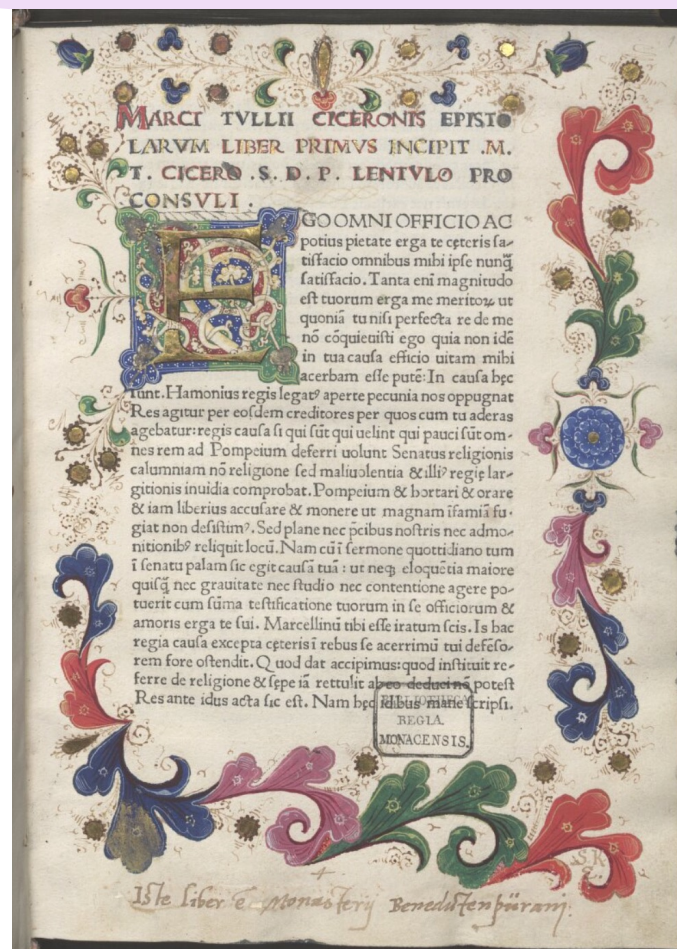 MARCI TVLLII CICERONIS EPISTO
LARVM LIBER PRIMVS INCIPIT .M.
T. CICERO .S. D. P. LENTVLO PRO
CONSVLI .
EGO OMNI OFFICIO AC
potius pietate erga te cęteris sa-
tisfacio omnibus mihi ipse nunq̃
satisfacio. Tanta eni magnitudo
est tuorum erga me meritoꝝ ut
quoniã tu nisi perfecta re de me
nõ cõquieuisti ego quia non idẽ
in tua causa efficio uitam mihi
acerbam esse putẽ: In causa hęc
sunt. Hamonius regis legatꝰ aperte pecunia nos oppugnat
Res agitur per eosdem creditores per quos cum tu aderas
agebatur: regis causa si qui sũt qui uelint qui pauci sũt om-
nes rem ad Pompeium deferri uolunt Senatus religionis
calumniam nõ religione sed maliuolentia & illiꝰ regię lar-
gitionis inuidia comprobat. Pompeium & hortari & orare
& iam liberius accusare & monere ut magnam ĩfamiã fu-
giat non desistimꝰ. Sed plane nec p̃cibus nostris nec admo-
nitionibꝰ reliquit locũ. Nam cũ ĩ sermone quottidiano tum
ĩ senatu palam sic egit causã tuã: ut neqꝫ eloquẽtia maiore
quisq̃ nec grauitate nec studio nec contentione agere po-
tuerit cum sũma testificatione tuorum in se officiorum &
amoris erga te sui. Marcellinũ tibi esse iratum scis. Is hac
regia causa excepta cęteris ĩ rebus se acerrimũ tui defẽso-
rem fore ostendit. Quod dat accipimus: quod instituit re-
ferre de religione & sępe iã rettulit ab eo deduci nõ potest
Res ante idus acta sic est. Nam hęc idibus mane scripsi.
BIBLIOTHECA
REGIA
MONACENSIS.
S.K
Iste liber ẽ Monasterij Benedictenpüranj.